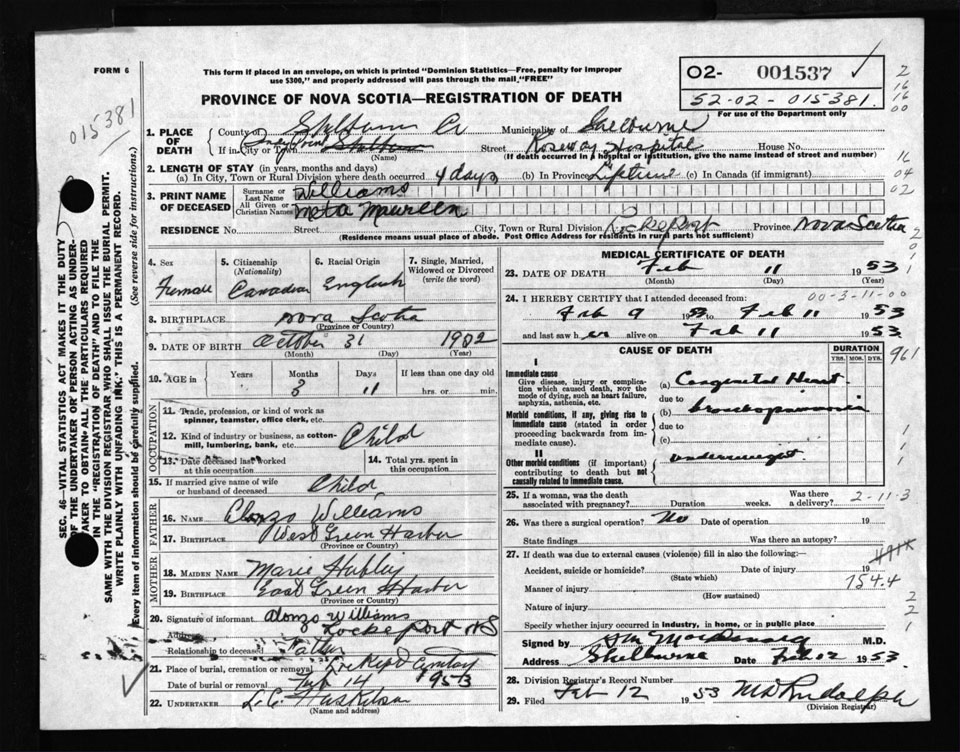 FORM 6
This form if placed in an envelope, on which is printed "Dominion Statistics—Free, penalty for improper
use $300," and properly addressed will pass through the mail, "FREE"
PROVINCE OF NOVA SCOTIA—REGISTRATION OF DEATH
O2- 001537
52-02-015381.
For use of the Department only
015381
2
16
16
00
16
04
02
2
0
1
1. PLACE OF DEATH
County of Shelburne Co Municipality of Shelburne
If in City or Town Sandy Point Shelburne (Name) Street Roseway Hospital House No.
(If death occurred in a hospital or institution, give the name instead of street and number)
2. LENGTH OF STAY (in years, months and days)
(a) In City, Town or Rural Division where death occurred 4 days (b) In Province Lifetime (c) In Canada (if immigrant)
3. PRINT NAME OF DECEASED
Surname or Last Name Williams
All Given or Christian Names Meta Maureen
RESIDENCE No. Street City, Town or Rural Division Lockeport Province Nova Scotia
(Residence means usual place of abode. Post Office Address for residents in rural parts not sufficient)
4. Sex Female
5. Citizenship (Nationality) Canadian
6. Racial Origin English
7. Single, Married, Widowed or Divorced (write the word)
8. BIRTHPLACE Nova Scotia
(Province or Country)
9. DATE OF BIRTH October 31 1952
(Month) (Day) (Year)
10. AGE in Years Months Days If less than one day old
3 11 hrs. or min.
OCCUPATION
11. Trade, profession, or kind of work as spinner, teamster, office clerk, etc.
12. Kind of industry or business, as cotton-mill, lumbering, bank, etc. Child
13. Date deceased last worked at this occupation
14. Total yrs. spent in this occupation
15. If married give name of wife or husband of deceased Child
FATHER
16. NAME Alonzo Williams
17. BIRTHPLACE West Green Harbor
(Province or Country)
MOTHER
18. MAIDEN NAME Marie Hupley
19. BIRTHPLACE East Green Harbor
(Province or Country)
20. Signature of informant Alonzo Williams
Address Locke port NS
Relationship to deceased Father
21. Place of burial, cremation or removal
Date of burial or removal Feb 14 1953
22. UNDERTAKER
(Name and address)
MEDICAL CERTIFICATE OF DEATH
23. DATE OF DEATH Feb 11 1953
(Month) (Day)
24. I HEREBY CERTIFY that I attended deceased from:
00-3-11-00
Feb 9 1953 to Feb 11 1953
and last saw her alive on Feb 11 1953
CAUSE OF DEATH
DURATION
YRS. MOS. DYS.
961
I
Immediate cause
Give disease, injury or complication which caused death, NOT the mode of dying, such as heart failure, asphyxia, asthenia, etc.
(a) Congenital Heart
due to
Morbid conditions, if any, giving rise to immediate cause (stated in order proceeding backwards from immediate cause).
(b) bronchopneumonia
due to
(c)
II
Other morbid conditions (if important) contributing to death but not causally related to immediate cause.
underweight
25. If a woman, was the death associated with pregnancy? Duration weeks. Was there a delivery?
2-11-3
26. Was there a surgical operation? No Date of operation 19
State findings Was there an autopsy?
27. If death was due to external causes (violence) fill in also the following:—
Accident, suicide or homicide? Date of injury 19
(State which)
754.4
Manner of injury
(How sustained)
Nature of injury
Specify whether injury occurred in industry, in home, or in public place
Signed by MacDonald M.D.
Address Shelburne Date Feb 12 1953.
28. Division Registrar's Record Number
29. Filed Feb 12 1953 Rudolph
(Division Registrar)
SEC. 46—VITAL STATISTICS ACT MAKES IT THE DUTY
OF THE UNDERTAKER OR PERSON ACTING AS UNDER-
TAKER TO OBTAIN ALL THE PARTICULARS REQUIRED
IN THE "REGISTRATION OF DEATH" AND TO FILE THE
SAME WITH THE DIVISION REGISTRAR WHO SHALL ISSUE THE BURIAL PERMIT.
WRITE PLAINLY WITH UNFADING INK. THIS IS A PERMANENT RECORD.
Every item of information should be carefully supplied. (See reverse side for instructions.)